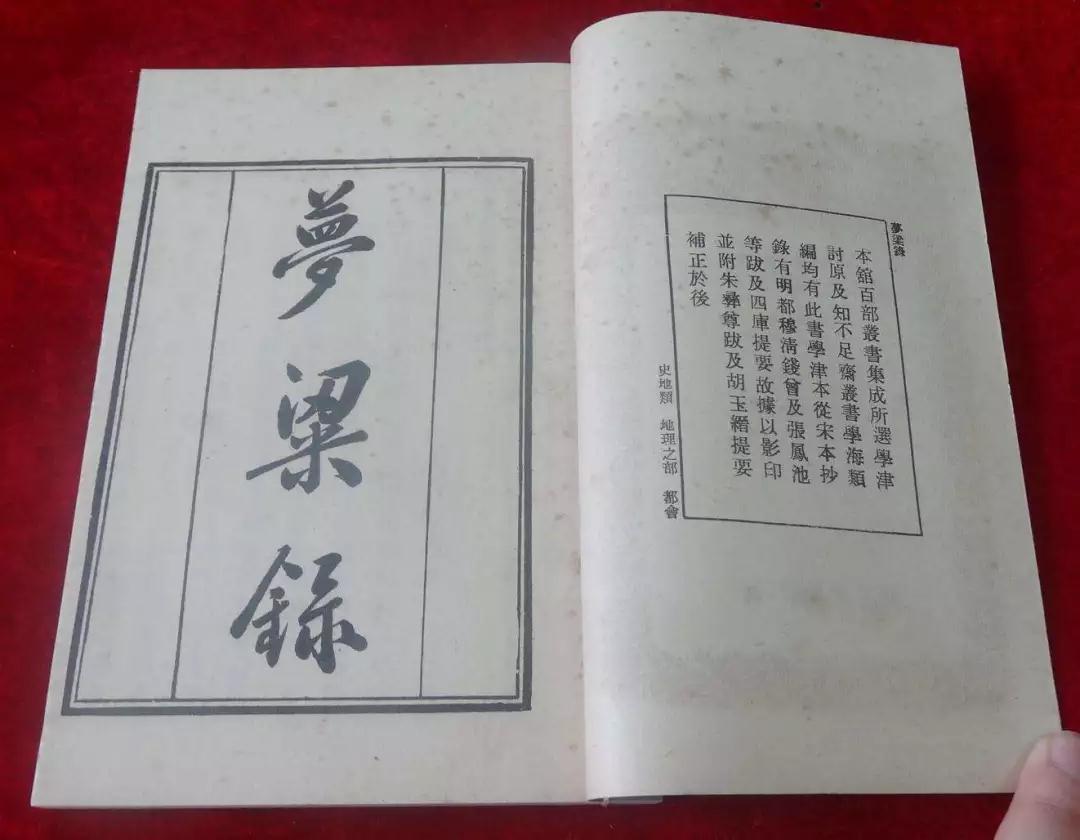 夢粱錄
本舘百部叢書集成所選學津
討原及知不足齋叢書學海類
編均有此書學津本從宋本抄
錄有明都穆清錢曾及張鳳池
等跋及四庫提要故據以影印
並附朱彝尊跋及胡玉縉提要
補正於後
史地類 地理之部 都會
夢粱錄